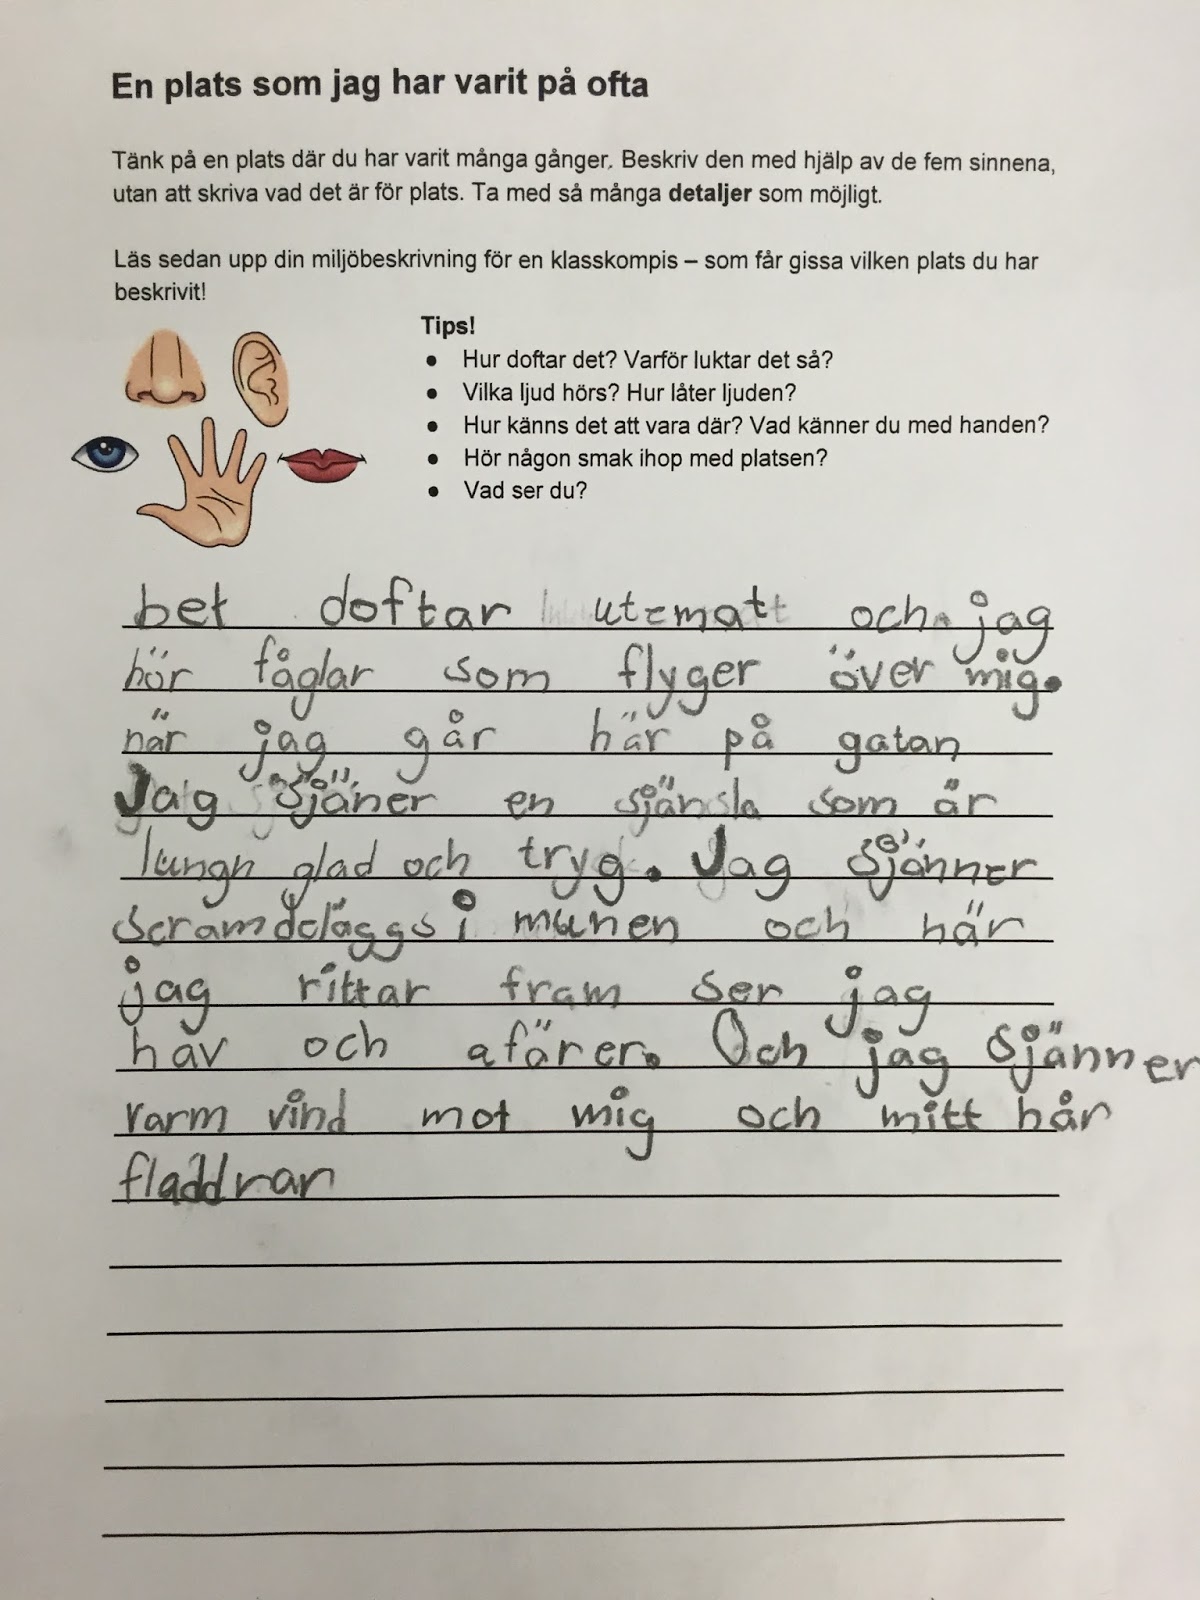 En plats som jag har varit på ofta
Tänk på en plats där du har varit många gånger. Beskriv den med hjälp av de fem sinnena,
utan att skriva vad det är för plats. Ta med så många detaljer som möjligt.
Läs sedan upp din miljöbeskrivning för en klasskompis – som får gissa vilken plats du har
beskrivit!
Tips!
● Hur doftar det? Varför luktar det så?
● Vilka ljud hörs? Hur låter ljuden?
● Hur känns det att vara där? Vad känner du med handen?
● Hör någon smak ihop med platsen?
● Vad ser du?
bet doftar utematt och jag
hör fåglar som flyger över mig.
när jag går här på gatan
Jag sjäner en sjänsla som är
lungn glad och tryg. Jag sjänner
i munen och när
jag rittar fram ser jag
hav och afärer. Och jag sjänner
varm vind mot mig och mitt hår
fladdrar